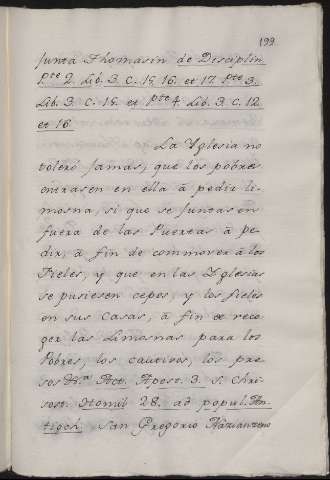 199
junta Thomasin de Disciplin.
pte 2. Lib. 3. C. 15. 16. et 17. pte 3.
Lib. 3. C. 15. et pte 4. Lib. 3. C. 12
et 16
La Yglesia no
toleró jamas, que los pobres
entrasen en ella á pedir li-
mosna, si que se juntasen
fuera de las Puertas á pe-
dir, á fin de commover á los
Fieles, y que en las Yglesias
se pusiesen cepos, y los fieles
en sus Casas, á fin de reco-
ger las Limosnas para los
Pobres, los cautivos, los pre-
sos &.a Act. Apost. 3. S. Chri-
sost. Homil 28. ad popul. An-
tioch. San Gregorio Nazianzeno